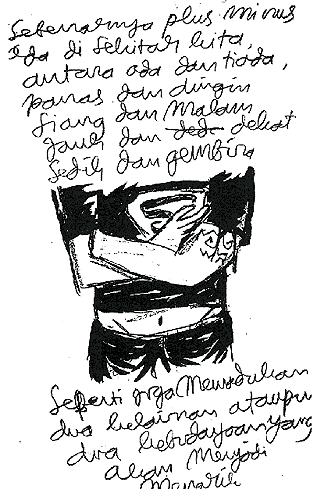 Sebenarnya plus minus
ada di sekitar kita,
antara ada dan tiada,
panas dan dingin
siang dan malam
jauh dan dek dekat
sedih dan gembira
Seperti juga memadukan
dua kelainan ataupun
dua kebudayaan yang
akan menjadi
menarik